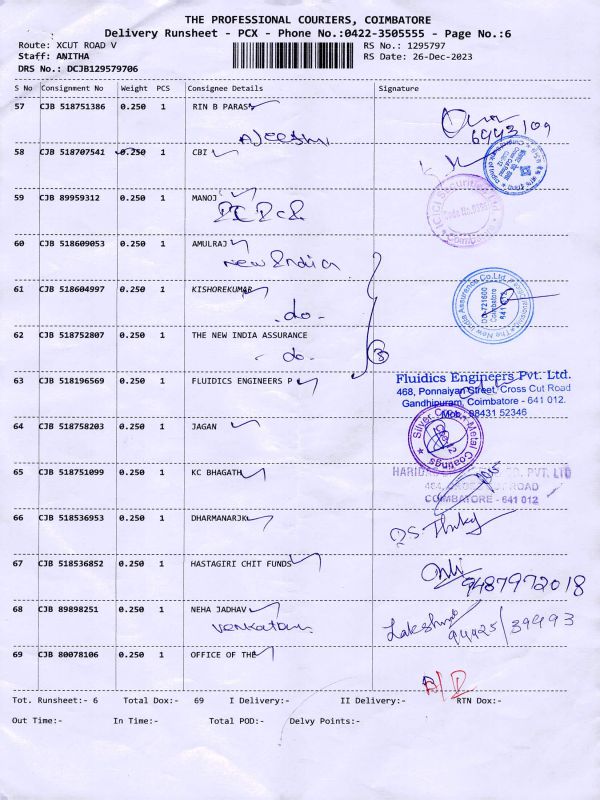 THE PROFESSIONAL COURIERS, COIMBATORE
Delivery Runsheet - PCX - Phone No.:0422-3505555 - Page No.:6
Route: XCUT ROAD V
RS No.: 1295797
Staff: ANITHA
RS Date: 26-Dec-2023
DRS No.: DCJB129579706
S No Consignment No Weight PCS Consignee Details Signature
57 CJB 518751386 0.250 1 RIN B PARAS
Ajeeshu
58 CJB 518707541 0.250 1 CBI
59 CJB 89959312 0.250 1 MANOJ
60 CJB 518609053 0.250 1 AMULRAJ
New India
61 CJB 518604997 0.250 1 KISHOREKUMAR
- do -
62 CJB 518752807 0.250 1 THE NEW INDIA ASSURANCE
- do - 3
63 CJB 518196569 0.250 1 FLUIDICS ENGINEERS P
Fluidics Engineers Pvt. Ltd.
468, Ponnaiyan Street, Cross Cut Road
Gandhipuram, Coimbatore - 641 012.
Mob : 98431 52346
64 CJB 518758203 0.250 1 JAGAN
Metal Coatings
65 CJB 518751099 0.250 1 KC BHAGATH
CO. PVT. LTD
ROAD
COIMBATORE - 641 012
66 CJB 518536953 0.250 1 DHARMANARJK
67 CJB 518536852 0.250 1 HASTAGIRI CHIT FUNDS
9487972018
68 CJB 89898251 0.250 1 NEHA JADHAV
Lakshmi
94425/39493
69 CJB 80078106 0.250 1 OFFICE OF THE
Tot. Runsheet:- 6 Total Dox:- 69 I Delivery:- II Delivery:- RTN Dox:-
Out Time:- In Time:- Total POD:- Delvy Points:-